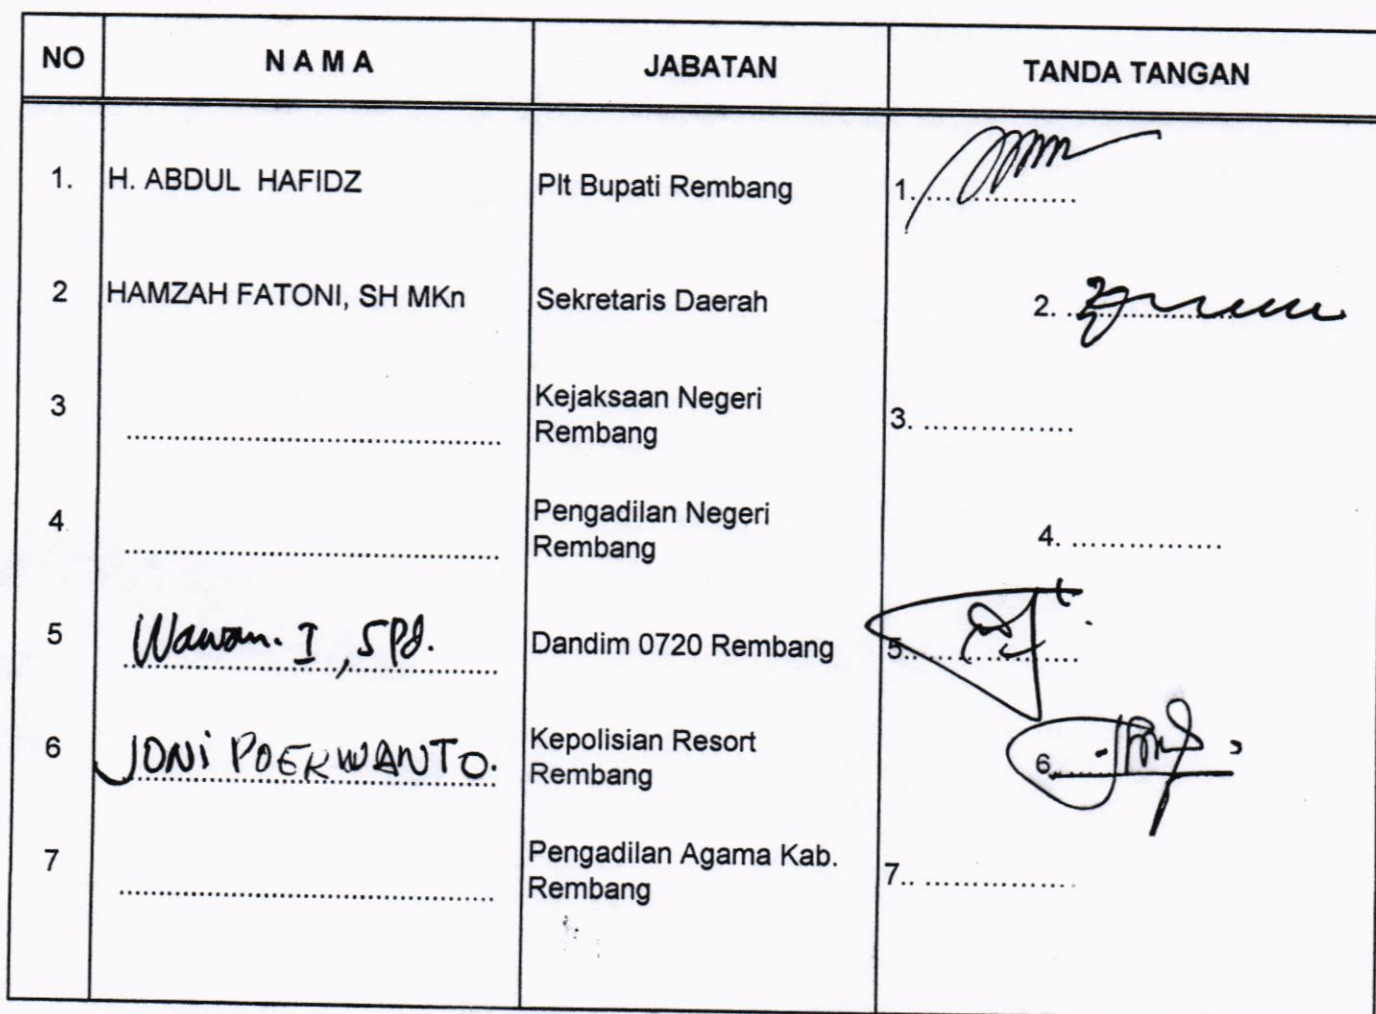 NO N A M A JABATAN TANDA TANGAN
1. H. ABDUL HAFIDZ Plt Bupati Rembang 1. ...............
2 HAMZAH FATONI, SH MKn Sekretaris Daerah 2. ...............
3 ............... Kejaksaan Negeri
Rembang 3. ...............
4 ............... Pengadilan Negeri
Rembang 4. ...............
5 Wawan. I, SPd. Dandim 0720 Rembang 5. ...............
6 JONI POERWANTO. Kepolisian Resort
Rembang 6. ...............
7 ............... Pengadilan Agama Kab.
Rembang 7.. ...............